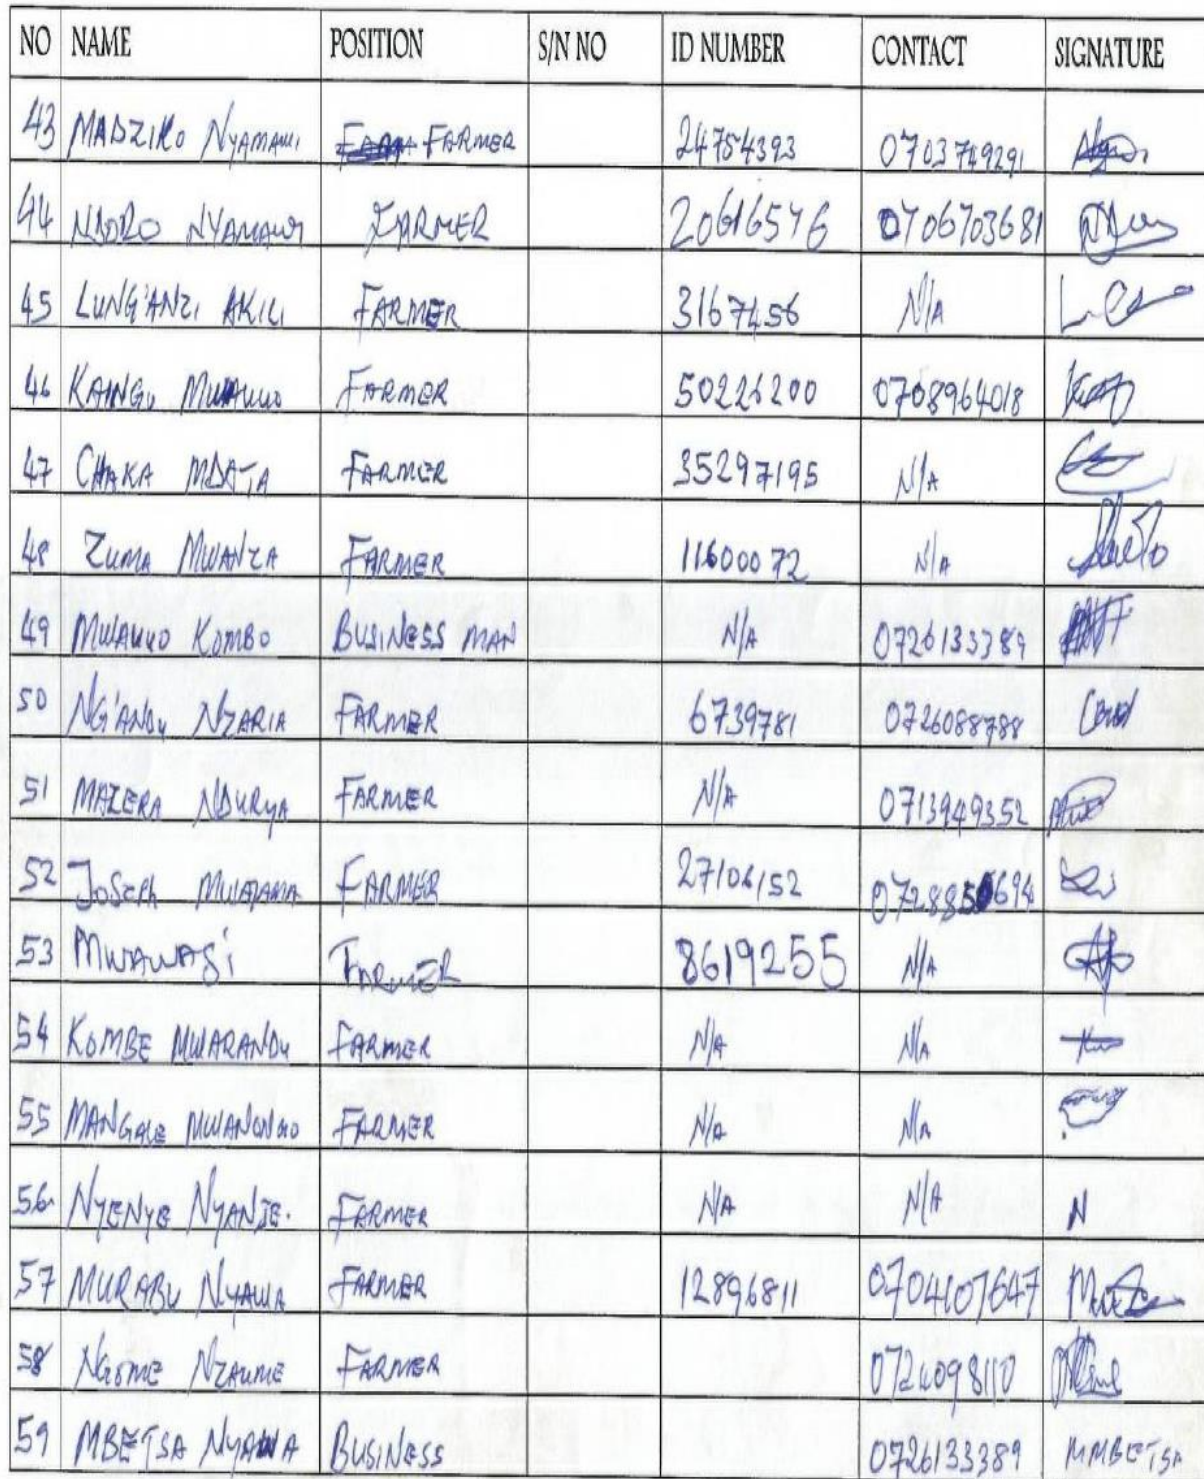 NO NAME POSITION S/N NO ID NUMBER CONTACT SIGNATURE
43 MADZIKO NYAMAWI FARMER 24754393 0703749291
44 NDORO NYAMAWI FARMER 20616576 0706703681
45 LUNG'ANZI AKILI FARMER 3167456 N/A
46 KAINGU MWAUYO FARMER 50226200 0708964018
47 CHAKA MDATA FARMER 35297195 N/A
48 ZUMA MWANZA FARMER 11600072 N/A
49 MWAUYO KOMBO BUSINESS MAN N/A 0726133389
50 NG'ANDU NZARIA FARMER 6739781 0726088788
51 MAZERA NDURYA FARMER N/A 0713949352
52 JOSEPH FARMER 27106152 0728850694
53 MWAWASI FARMER 8619255 N/A
54 KOMBE MWARANDU FARMER N/A N/A
55 MANGALE FARMER N/A N/A
56 NYENYE NYANJE. FARMER N/A N/A N
57 MURABU NYAWA FARMER 12896811 0704107647
58 NGOME NZAUME FARMER 0724098110
59 MBETSA NYAWA BUSINESS 0726133389 MMBETSA